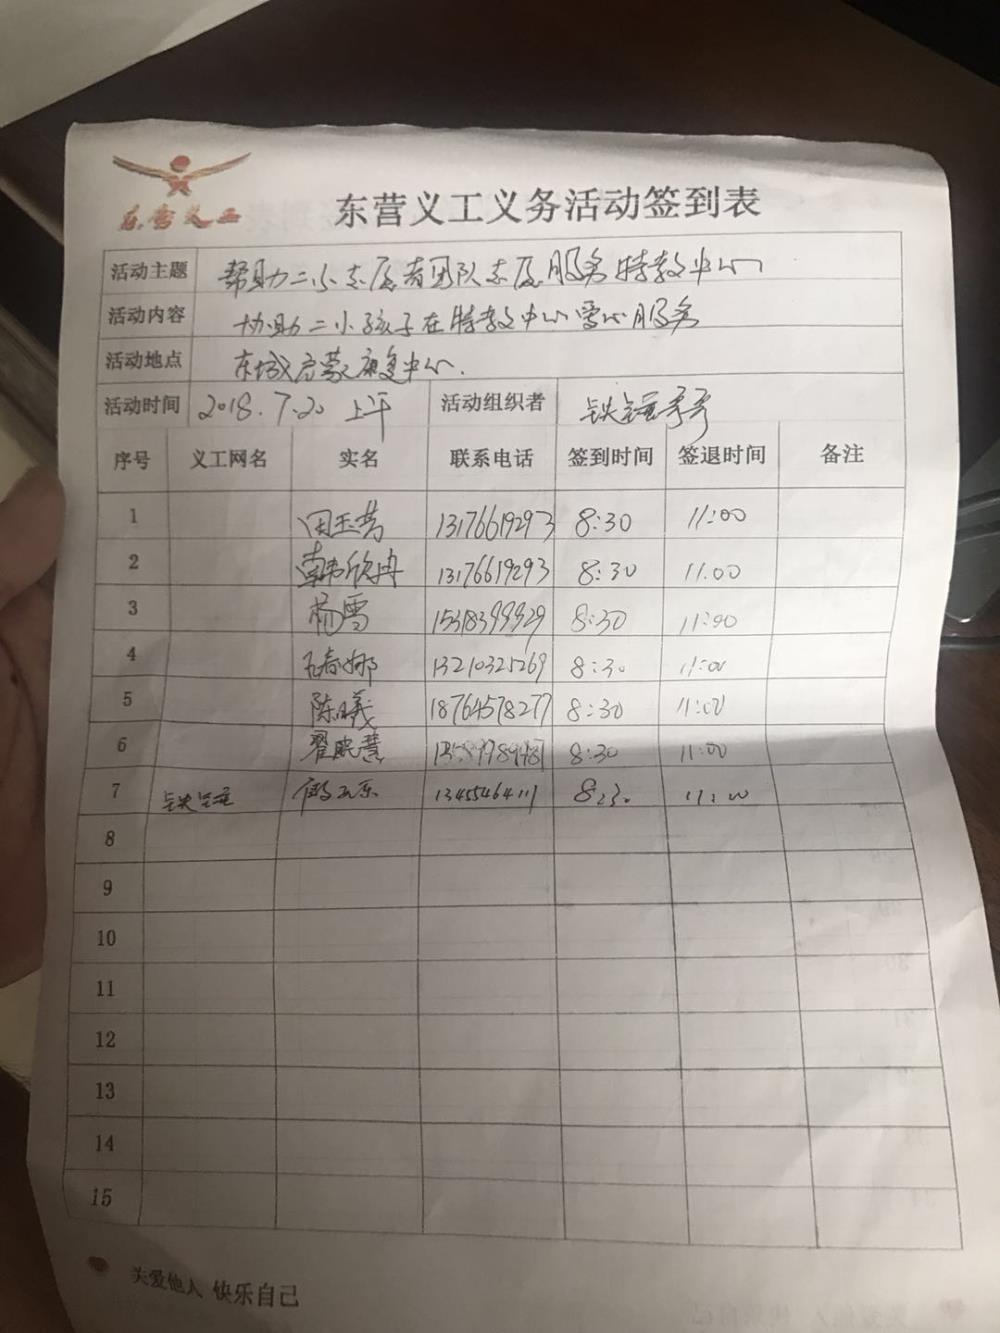 东营义工
东营义工义务活动签到表
活动主题 帮助二小志愿者团队志愿服务特教中心
活动内容 协助二小孩子在特教中心爱心服务
活动地点 东城启蒙康复中心.
活动时间 2018.7.20 上午 活动组织者 铁锤哥哥
序号 义工网名 实名 联系电话 签到时间 签退时间 备注
1 田玉芳 13176619293 8:30 11:00
2 韩欣冉 13176619293 8:30 11.00
3 杨雪 15318399929 8:30 11:00
4 春娜 13210325269 8:30 11:00
5 陈曦 18764578277 8:30 11:00
6 翟晓慧 8:30 11:00
7 铁锤 13455464111 8:30 11:00
8
9
10
11
12
13
14
15
关爱他人 快乐自己